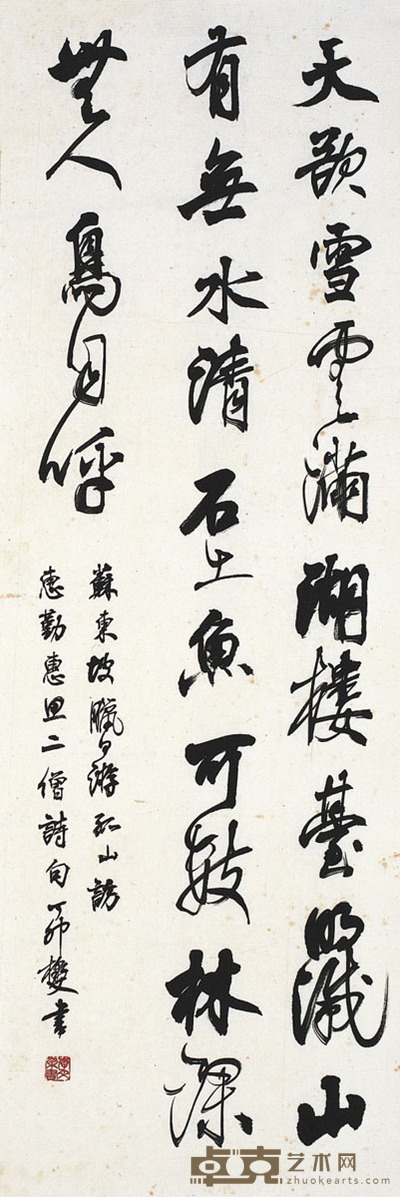 天欲雪雲滿湖樓臺明滅山
有無水清石出魚可數林深
無人鳥自呼
蘇東坡臘日游孤山訪
惠勤惠思二僧詩句丁卯書
卓克艺术网
zhuokearts.com